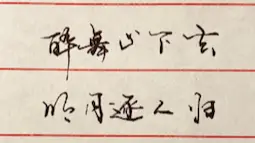 醉舞山下去
明月逐人归